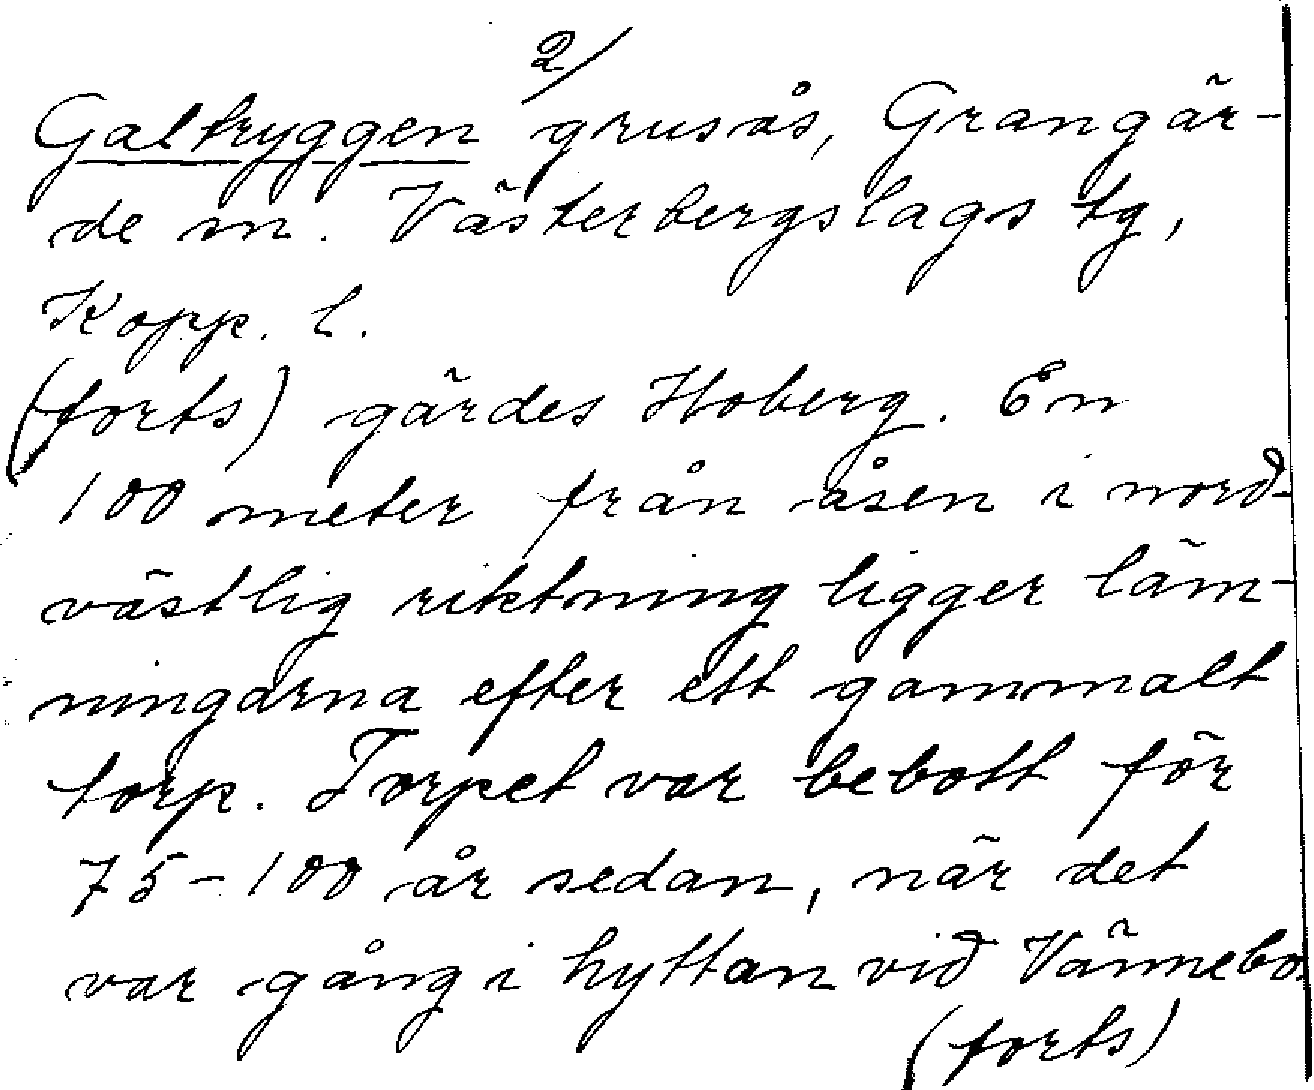 2/
Galtryggen grusås, Grangär-
de sn. Västerbergslags tg,
Kopp. l.
(forts) gärdes Hoberg. En
100 meter från åsen i nord-
västlig riktning ligger läm-
ningarna efter ett gammalt
torp. Torpet var bebott för
75-100 år sedan, när det
var gång i hyttan vid Vännebo
(forts)